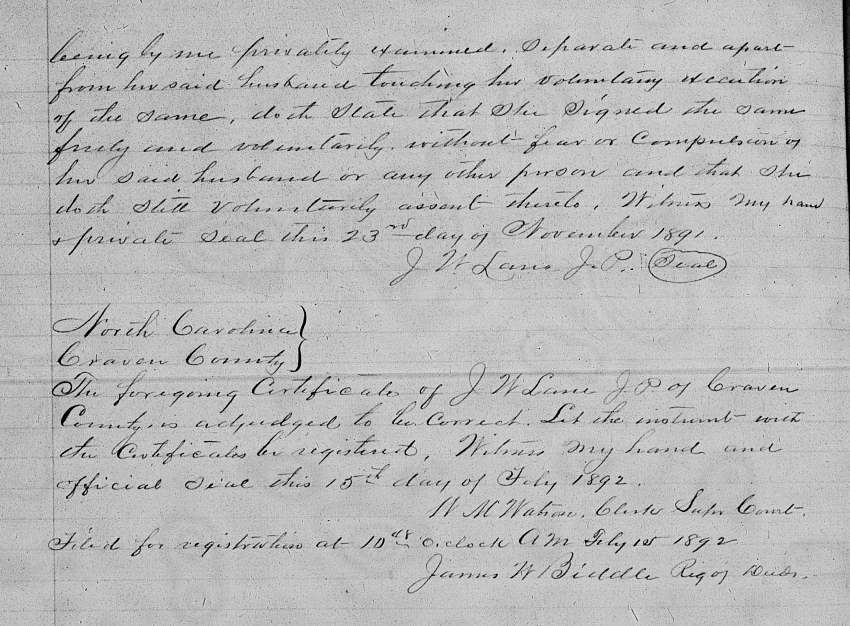 being by me privately examined, separate and apart
from her said husband touching her voluntary execution
of the same, doth State that She Signed the same
freely and voluntarily without fear or Compulsion of
her said husband or any other person and that she
doth still voluntarily assent thereto. Witness my hand
& private seal this 23rd day of November 1891.
J W Lane J.P. Seal
North Carolina
Craven County
The foregoing Certificates of J W Lane J P of Craven
County is adjudged to be Correct. Let the instrumt with
the Certificates be registered. Witness my hand and
official seal this 15th day of Feby 1892.
W M Watson, Clerk Supr Court.
Filed for registration at 10 o'clock AM Feby 15 1892
James W Biddle Reg of Deeds.